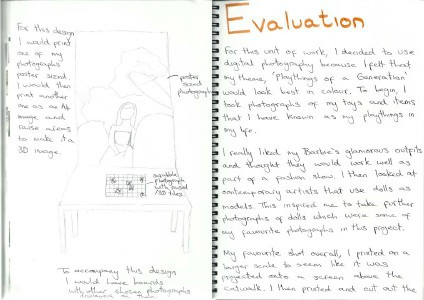 For this design
I would print
one of my
photographs
poster sized.
I would then
print another
one as an A6
image and
raise areas
to make it a
3D image.
poster
sized
photograph
scrabble
photograph
with raised
3D tiles.
To accompany this design
I would have boards
with other shoes photographs
displayed on them
Evaluation
For this unit of work, I decided to use
digital photography because I felt that
my theme, 'Playthings of a Generation'
would look best in colour. To begin, I
took photographs of my toys and items
that I have known as my playthings in
my life.
I really liked my Barbie's glamorous outfits
and thought they would work well as
part of a fashion show. I then looked at
contemporary artists that use dolls as
models. This inspired me to take further
photographs of dolls which were some of
my favourite photographs in this project.
My favourite shot overall, I printed on a
larger scale to seem like it was
projected onto a screen above the
catwalk. I then printed and cut out the